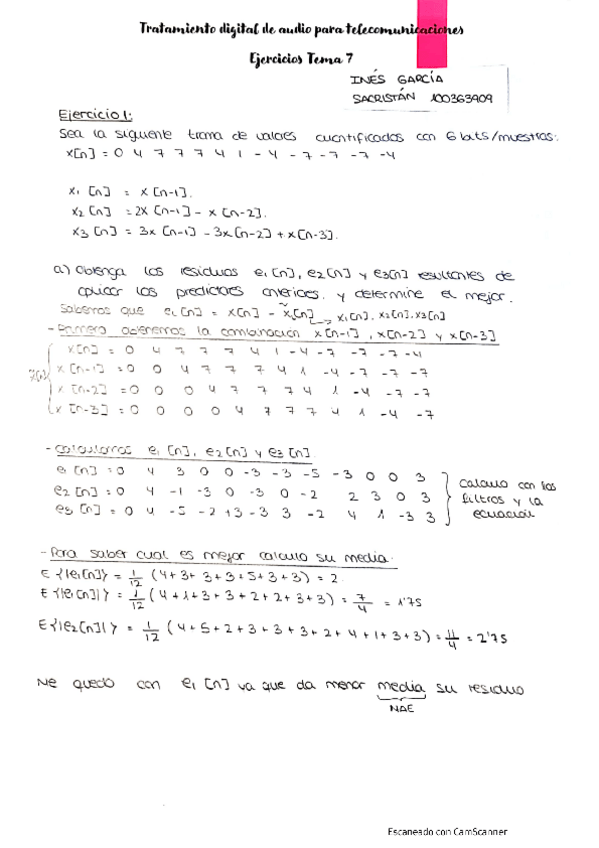 Tratamiento digital de audio para telecomunicaciones
Ejercicios Tema 7
INÉS GARCÍA
SACRISTÁN 100363909
Ejercicio 1:
Sea la siguiente trama de valores cuantificados con 6 bits/muestras:
x[n] = 0 4 7 7 7 4 1 -4 -7 -7 -7 -4
x1 [n] = x [n-1].
x2 [n] = 2x [n-1] - x [n-2].
x3 [n] = 3x [n-1] - 3x[n-2] + x[n-3].
a) Obtenga los residuos e1[n], e2[n] y e3[n] resultantes de
aplicar los predictores anteriores. y determine el mejor.
Sabemos que ei[n] = x[n] - x̃[n] → x1[n], x2[n], x3[n]
- Primero obtenemos la combinación x[n-1], x[n-2] y x[n-3]
x[n] = 0 4 7 7 7 4 1 -4 -7 -7 -7 -4
x [n-1] = 0 0 4 7 7 7 4 1 -4 -7 -7 -7
x [n-2] = 0 0 0 4 7 7 7 4 1 -4 -7 -7
x [n-3] = 0 0 0 0 4 7 7 7 4 1 -4 -7
- Calculamos e1 [n], e2[n] y e3 [n].
e1 [n] = 0 4 3 0 0 -3 -3 -5 -3 0 0 3
e2 [n] = 0 4 -1 -3 0 -3 0 -2 2 3 0 3
e3 [n] = 0 4 -5 -2 +3 -3 3 -2 4 1 -3 3
Calculo con los
filtros y la
ecuación
- Para saber cual es mejor calculo su media.
E {|e1[n]|} = 1/12 (4+3+3+3+5+3+3) = 2
E {|e1[n]|} = 1/12 (4+1+3+3+2+2+3+3) = 7/4 = 1'75
E{|e2[n]|} = 1/12 (4+5+2+3+3+3+2+4+1+3+3) = 11/4 = 2'75
Me quedo con e1 [n] ya que da menor media su residuo
NAE
Escaneado con CamScanner